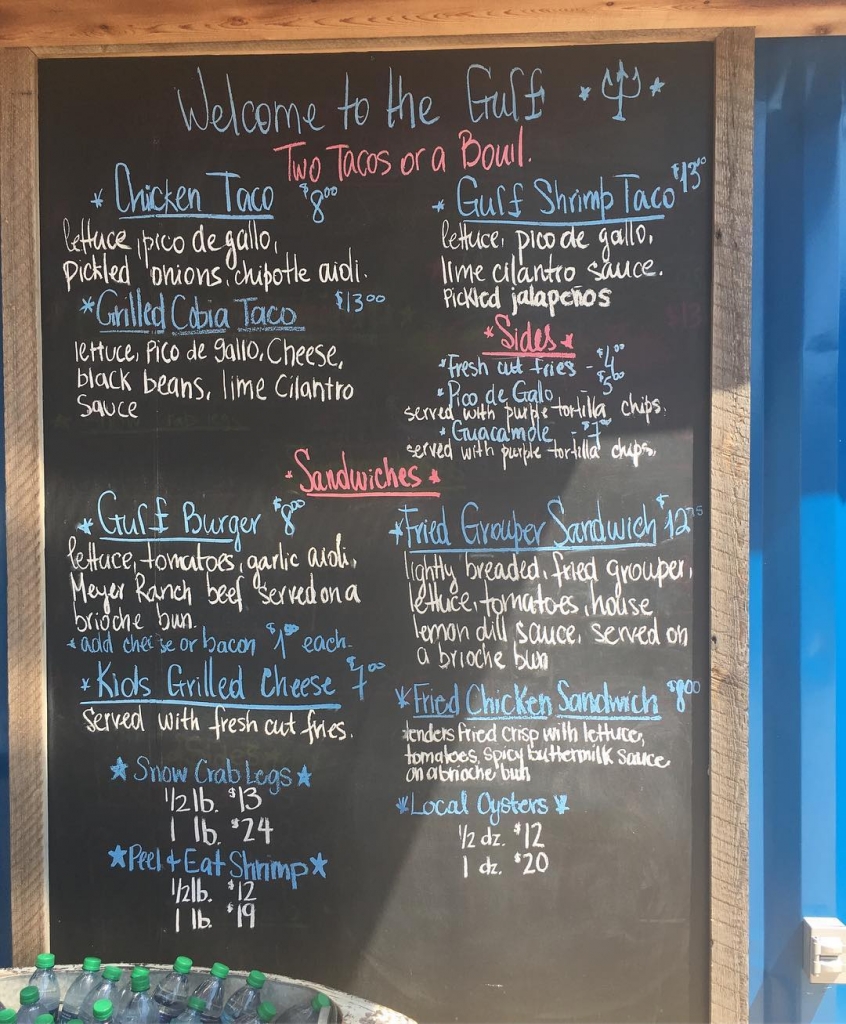 Welcome to the Gulf
Two Tacos or a Bowl.
* Chicken Taco $8.00
lettuce, pico de gallo,
pickled onions, chipotle aioli.
* Grilled Cobia Taco $13.00
lettuce, Pico de gallo, Cheese,
black beans, lime Cilantro
Sauce
* Gulf Shrimp Taco $13.00
lettuce, pico de gallo,
lime cilantro sauce.
Pickled jalapeños
* Sides *
* Fresh cut fries - $4.00
* Pico de Galo $5.00
served with purple tortilla chips.
* Guacamole - $7
served with purple tortilla chips.
* Sandwiches *
* Gulf Burger $8.00
lettuce, tomatoes, garlic aioli,
Meyer Ranch beef served on a
brioche bun.
* add cheese or bacon $1.00 each.
* Kids Grilled Cheese $7.00
Served with fresh cut fries.
* Snow Crab Legs *
1/2 lb. $13
1 lb. $24
* Peel + Eat Shrimp *
1/2 lb. $12
1 lb. $19
* Fried Grouper Sandwich $12.75
lightly breaded, fried grouper,
lettuce, tomatoes, house
lemon dill sauce, served on
a brioche bun
* Fried Chicken Sandwich $8.00
tenders fried crisp with lettuce,
tomatoes, spicy buttermilk sauce
on a brioche bun
* Local Oysters *
1/2 dz. $12
1 dz. $20